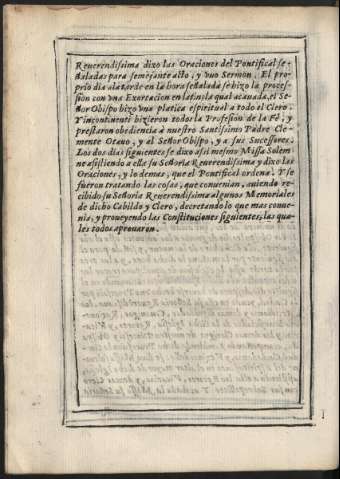 Reuerendissima dixo las Oraciones del Pontifical se-
ñaladas para semejante acto, y vuo Sermon. El pro-
prio dia ala tarde en la hora señalada se hizo la proces-
sion con vna Exortacion en latin: la qual acauada, el Se-
ñor Obispo hizo vna platica espiritual a todo el Clero.
Y incontinenti hizieron todos la Profesion de la Fè, y
prestaron obediencia à nuestro Santissimo Padre Cle-
mente Otauo, y al Señor Obispo, y a sus Sucessores.
Los dos dias siguientes se dixo assi mesmo Missa Solem
ne asistiendo a ella su Señoria Reuerendissima y dixo las
Oraciones, y lo demas, que el Pontifical ordena. Y se
fueron tratando las cosas, que conuenian, auiendo re-
cibido su Señoria Reuerendissima algunos Memoriales
de dicho Cabildo y Clero, decretando lo que mas conue-
nia, y proueyendo las Constituciones siguientes, las qua-
les todos aprouaron.